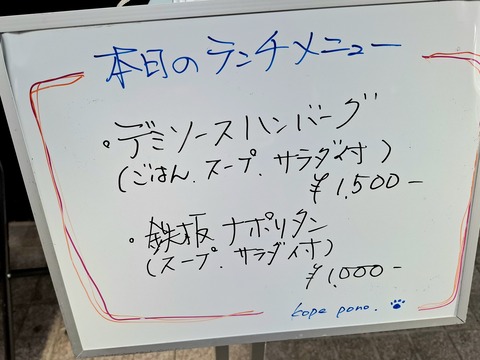 本日のランチメニュー
・デミソースハンバーグ
(ごはん、スープ、サラダ付)
¥1,500-
・鉄板ナポリタン
(スープ、サラダ付)
¥1,000-
kope pono.